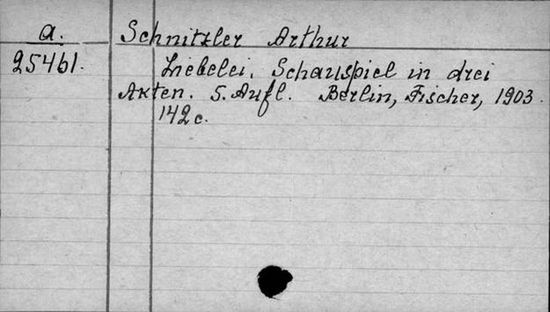 a. Schnitzler Arthur
25461. Liebelei. Schauspiel in drei
Akten. 5. Aufl. Berlin, Fischer, 1903.
142 c.